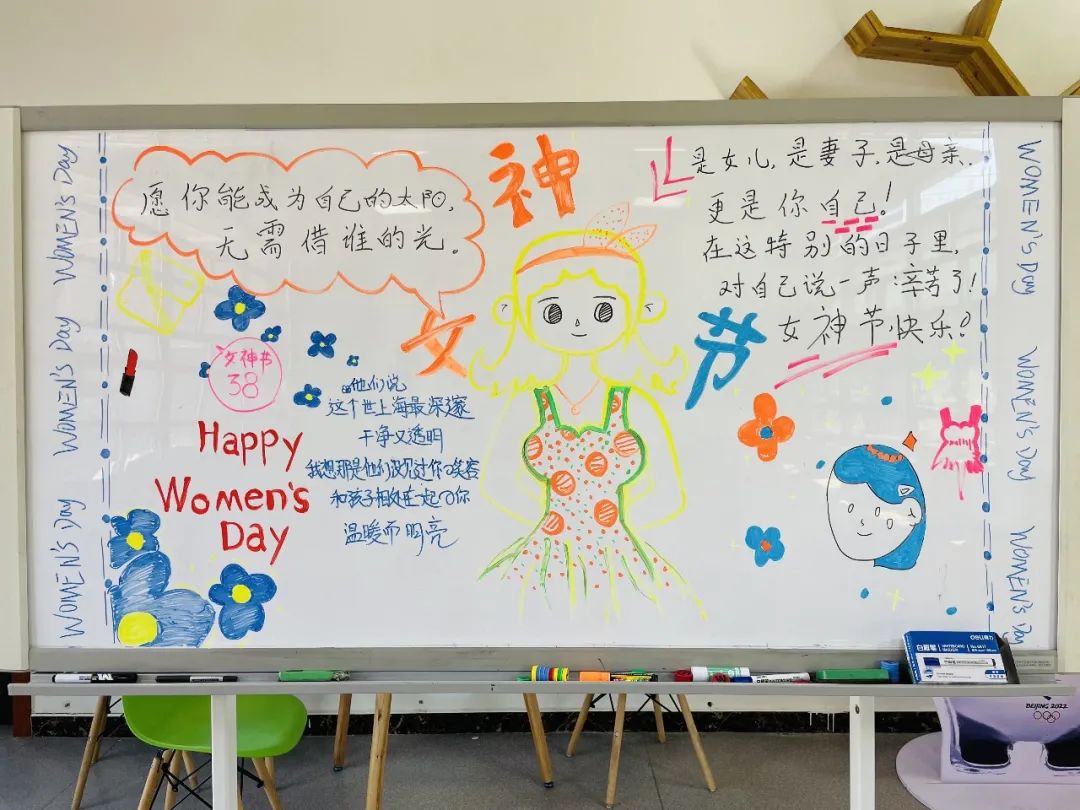 WOMEN'S Day
WOMEN'S Day
WOMEN'S Day
愿你能成为自己的太阳,
无需借谁的光。
神
女
节
是女儿,是妻子,是母亲..
更是你自己!
在这特别的日子里,
对自己说一声:辛苦了!
女神节快乐!
女神节
38
Happy
Women's
Day
他们说
这个世上海最深邃
干净又透明
我想那是他们没见过你の笑容
和孩子相处在一起の你
温暖而明亮
WOMEN'S Day
WOMEN'S Day
WOMEN'S Day
白板笔
BEIJING 2022